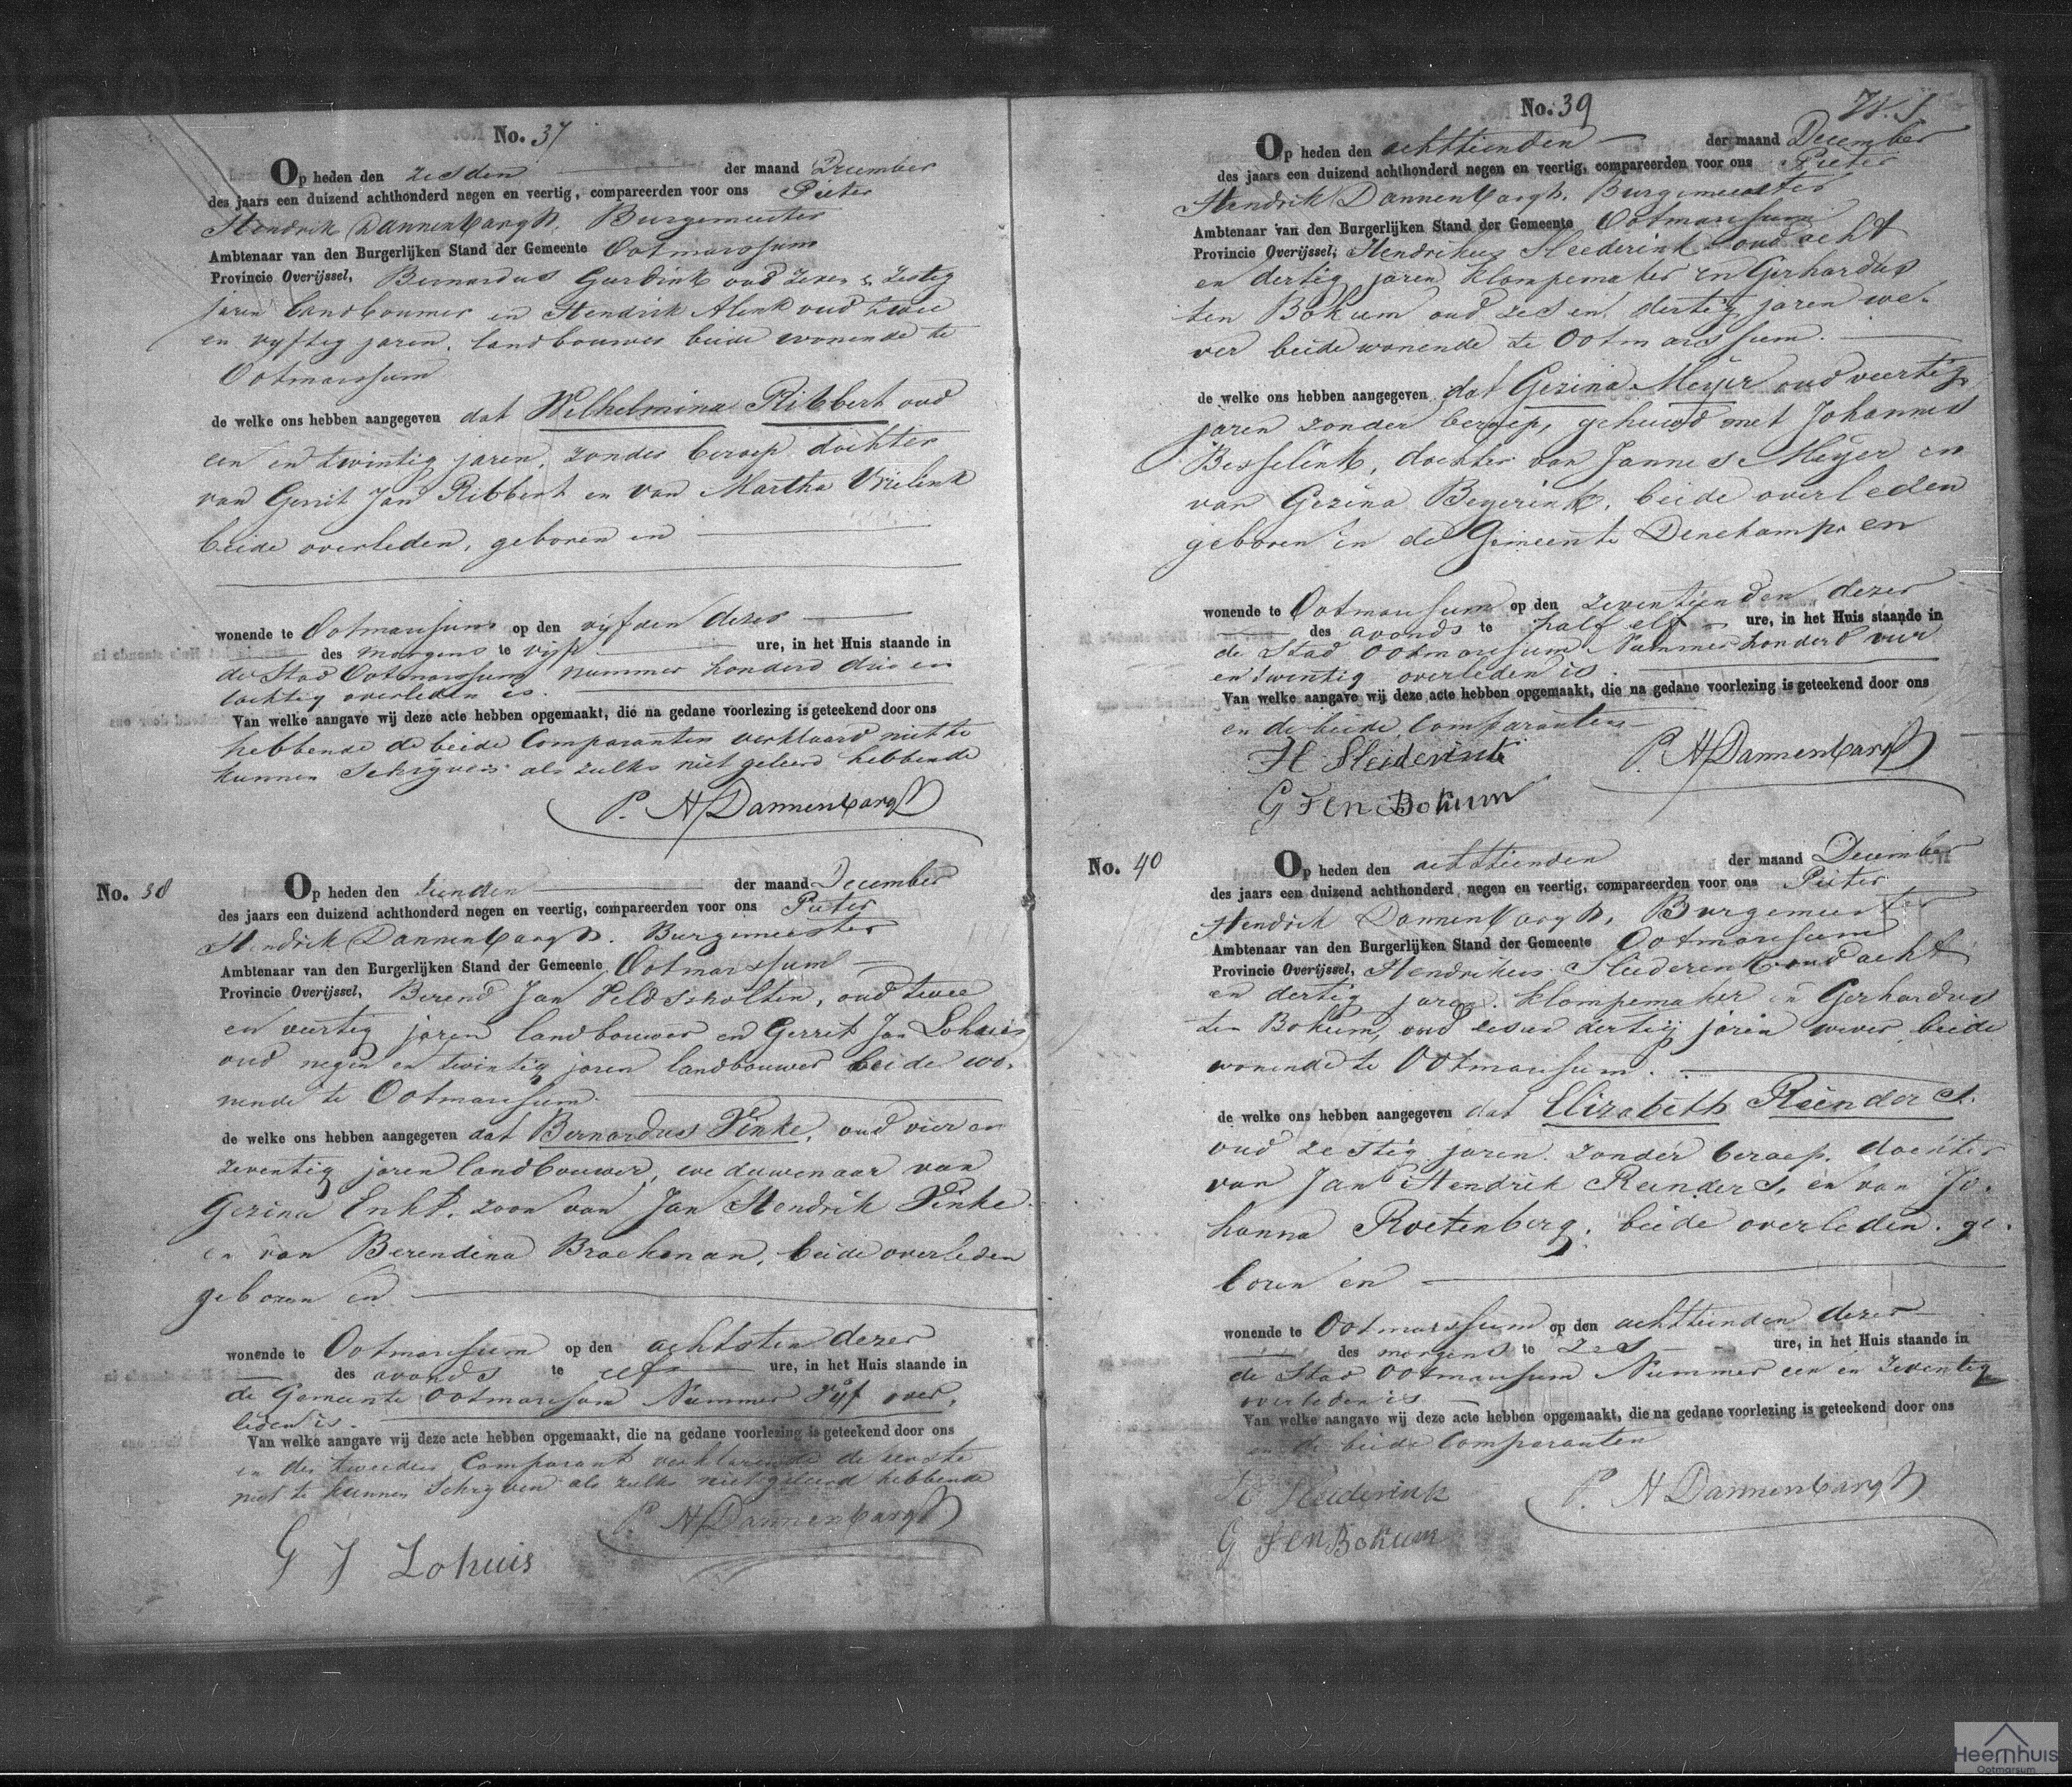 No. 37
Op heden den zesden der maand December
des jaars een duizend achthonderd negen en veertig, compareerden voor ons Pieter
Hendrik Dannenbargh, Burgemeester
Ambtenaar van den Burgerlijken Stand der Gemeente Ootmarssum
Provincie Overijssel, Bernardus oud zeven en zestig
jaren landbouwer en Hendrik Alink oud twee
en vyftig jaren, landbouwer beide wonende te
Ootmarssum
de welke ons hebben aangegeven dat Wilhelmina Ribbert oud
een en twintig jaren, zonder beroep dochter
van Gerrit Jan Ribbert en van Martha Vrielink
beide overleden, geboren en
wonende te Ootmarssum op den vyfden dezer
des morgens te vyf ure, in het Huis staande in
de Stad Ootmarssum nummer honderd drie en
tachtig overleden is.
Van welke aangave wij deze acte hebben opgemaakt, die na gedane voorlezing is geteekend door ons
hebbende de beide Comparanten verklaard niet te
kunnen schryven als zulks niet geleerd hebbende
P. H Dannenbargh
No. 38
Op heden den tienden der maand December
des jaars een duizend achthonderd negen en veertig, compareerden voor ons Pieter
Hendrik Dannenbargh. Burgemeester
Ambtenaar van den Burgerlijken Stand der Gemeente Ootmarssum
Provincie Overijssel, Berend Jan Veldscholten, oud twee
en veertig jaren landbouwer en Gerret Jan Lohuis
oud negen en twintig jaren landbouwer beide wo-
nende te Ootmarssum.
de welke ons hebben aangegeven dat Bernardus Vinke, oud vier en
zeventig jaren landbouwer, weduwenaar van
Gezina Enht, zoon van Jan Hendrik Vinke
en van Berendina Brackman, beide overleden
geboren en
wonende te Ootmarssum op den achtsten dezer
des avonds te elf ure, in het Huis staande in
de Gemeente Ootmarssum Nummer Vyf over-
leden is.
Van welke aangave wij deze acte hebben opgemaakt, die na gedane voorlezing is geteekend door ons
en de tweeden Comparant verklarende de eerste
niet te kunnen Schryven als zulks niet geleerd hebbende
P. H Dannenbargh
G J Lohuis
No. 39
Op heden den achttienden der maand December
des jaars een duizend achthonderd negen en veertig, compareerden voor ons Pieter
Hendrik Dannenbargh. Burgemeester
Ambtenaar van den Burgerlijken Stand der Gemeente Ootmarssum
Provincie Overijssel, Hendrikus Sleiderink oud acht
en dertig jaren klompemaker en Gerhardus
ten Bokum oud zes en dertig jaren we-
ver beide wonende te Ootmarssum.
de welke ons hebben aangegeven dat Gezina Meijer oud veertig
jaren zonder beroep, gehuwd met Johannes
Besselink, dochter van Jannes Meijer en
van Gezina Begerink, beide overleden
geboren in de Gemeente Denekamp en
wonende te Ootmarssum op den zeventienden dezer
des avonds te half elf ure, in het Huis staande in
de Stad Ootmarssum Nummer honderd vier
en twintig overleden is.
Van welke aangave wij deze acte hebben opgemaakt, die na gedane voorlezing is geteekend door ons
en de beide Comparanten
H Sleiderink P. H Dannenbargh
G Ten Bokum
No. 40
Op heden den achttienden der maand December
des jaars een duizend achthonderd negen en veertig, compareerden voor ons Pieter
Hendrik Dannenbargh, Burgemeester
Ambtenaar van den Burgerlijken Stand der Gemeente Ootmarssum
Provincie Overijssel, Hendrikus Sleiderink oud acht
en dertig jaren klompemaker en Gerhardus
ten Bokum, oud zes en dertig jaren wever beide
wonende te Ootmarssum.
de welke ons hebben aangegeven dat Elizabeth Reinders.
oud zestig jaren zonder beroep. dochter
van Jan Hendrik Reinders, en van Jo-
hanna Roetenberg, beide overleden. ge-
boren en
wonende te Ootmarssum op den achttienden dezer
des morgens te zes ure, in het Huis staande in
de Stad Ootmarssum Nummer een en zeventig
overleden is
Van welke aangave wij deze acte hebben opgemaakt, die na gedane voorlezing is geteekend door ons
en de beide Comparanten
H Sleiderink P. H Dannenbargh
G Ten Bokum
Heemhuis
Ootmarsum